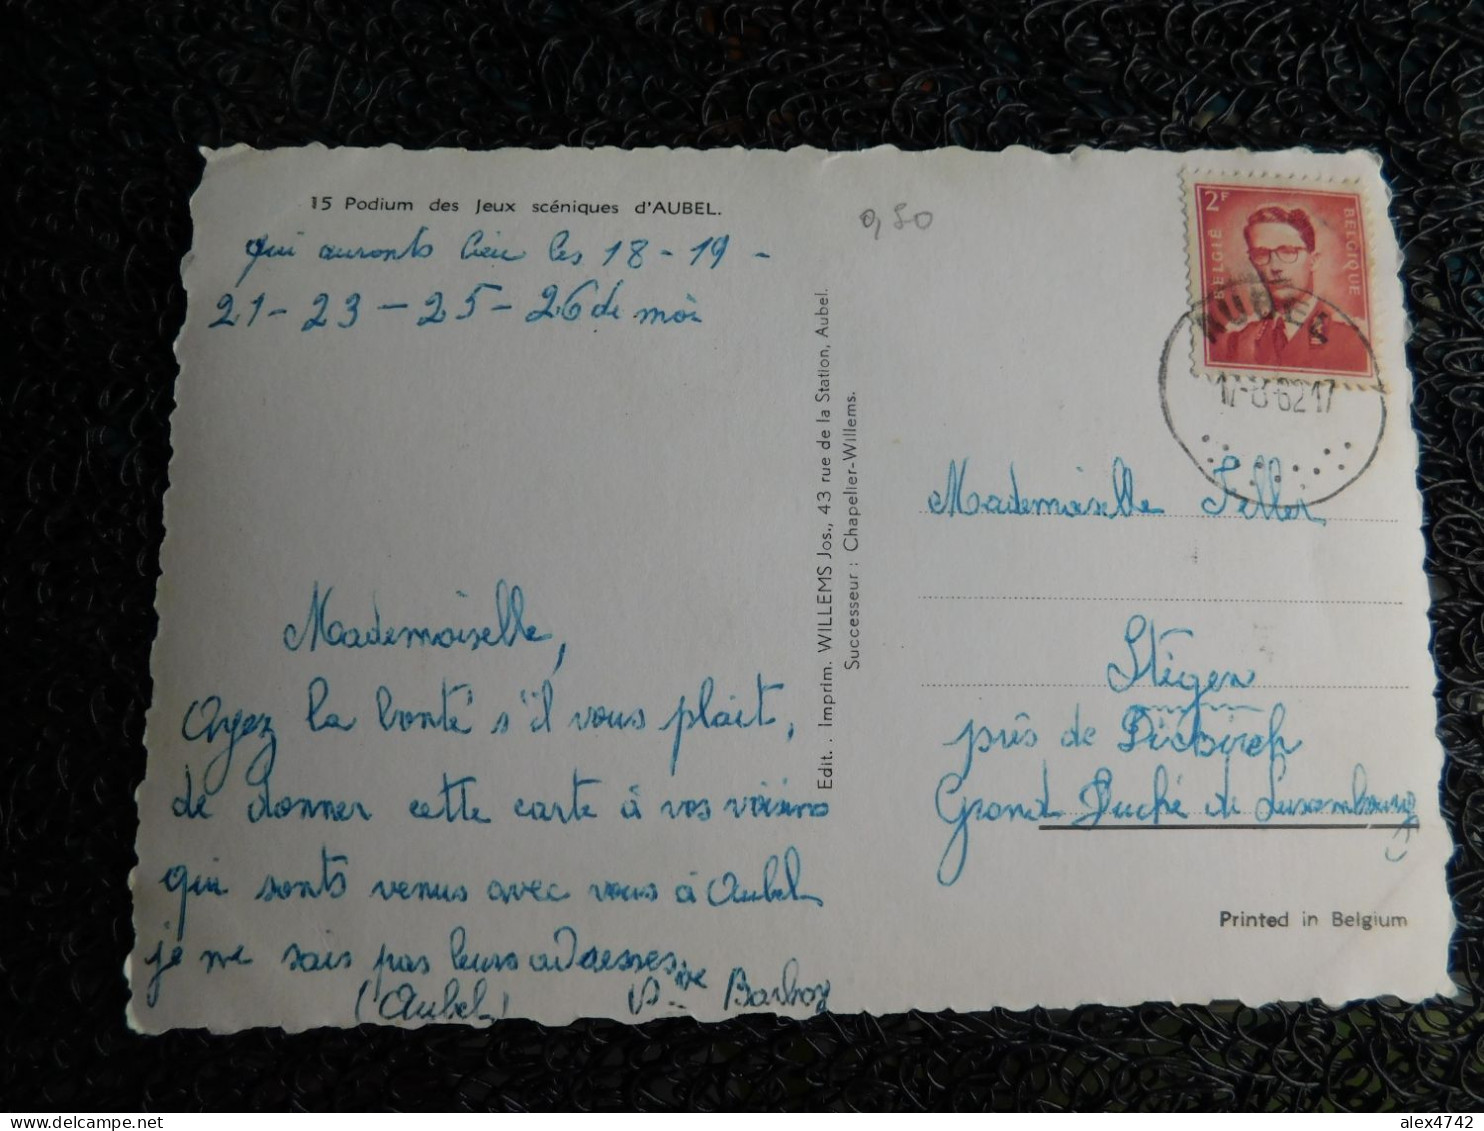 15 Podium des Jeux scéniques d'AUBEL.
qui auronts lieu les 18 - 19 -
21 - 23 - 25 - 26 de moi
Mademoiselle,
Ayez la bonté s'il vous plait,
de donner cette carte à vos voisins
qui sonts venus avec vous à Aubel
je ne sais pas leurs adresses.
(Aubel) Vve Barboz
Edit. . Imprim. WILLEMS Jos., 43 rue de la Station, Aubel.
Successeur : Chapelier-Willems.
0,50
2F
BELGIË
BELGIQUE
AUBEL
17-8-62 17
Mademoiselle Feller
Stegen
près de Diekirch
Grand Duché de Luxembourg
Printed in Belgium
alex4742